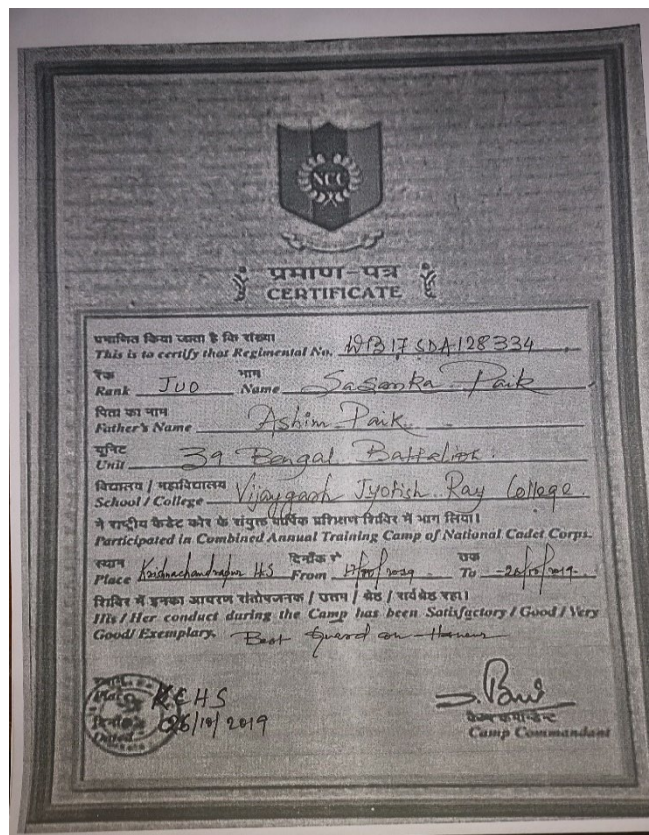 NCC
प्रमाण-पत्र
CERTIFICATE
प्रमाणित किया जाता है कि संख्या
This is to certify that Regimental No. WB17SDA128334
रैंक नाम
Rank JUO Name Sasanka Paik
पिता का नाम
Father's Name Ashim Paik
यूनिट
Unit 39 Bengal Battelion
विद्यालय / महाविद्यालय
School / College Vijaygarh Jyotish Ray College
ने राष्ट्रीय कैडेट कोर के संयुक्त वार्षिक प्रशिक्षण शिविर में भाग लिया।
Participated in Combined Annual Training Camp of National Cadet Corps.
स्थान दिनाँक से तक
Place Krishnachandrapur H.S From To
शिविर में इनका आचरण संतोषजनक / उत्तम / श्रेष्ठ / सर्वश्रेष्ठ रहा।
His / Her conduct during the Camp has been Satisfactory / Good / Very
Good/ Exemplary. Best Guard on Honour
KCHS
26/10/2019
Dated
कैम्प कमान्डेन्ट
Camp Commandant